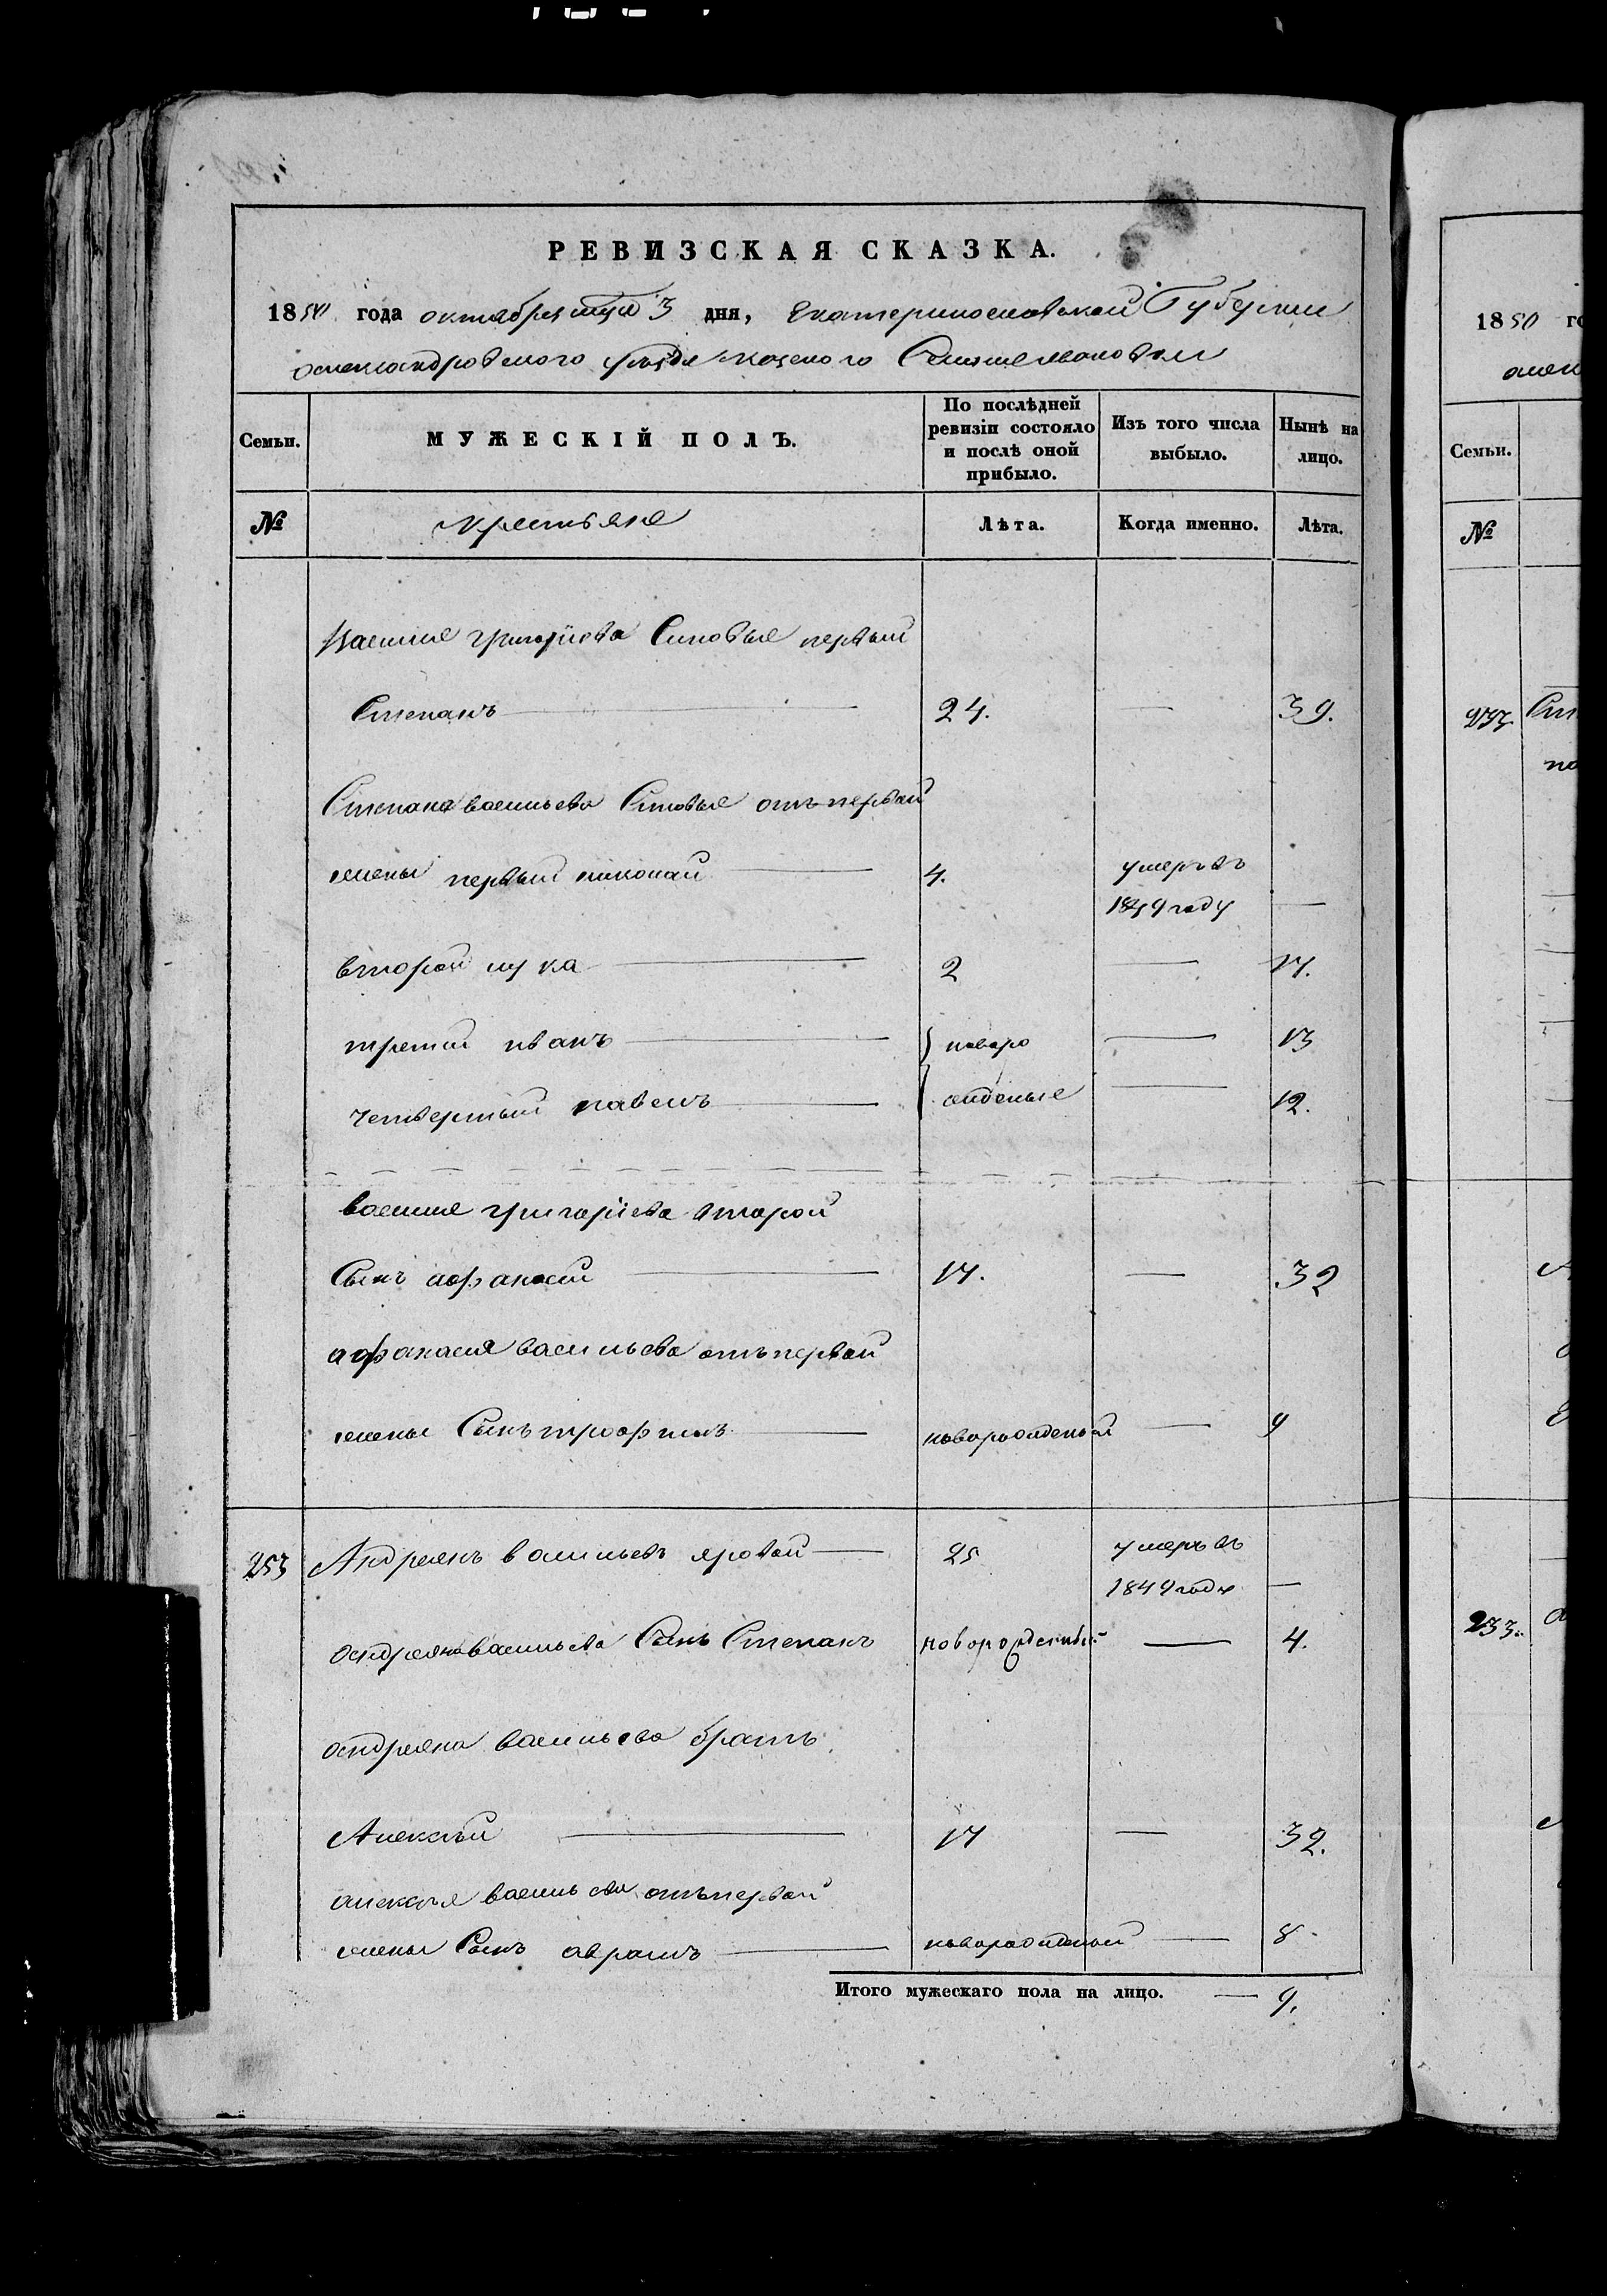 РЕВИЗСКАЯ СКАЗКА.
1850 года октября 3 дня, Екатеринославской Губернии
александровского уезда казеного Селища
Семьи. МУЖЕСКІЙ ПОЛЪ. По послѣдней ревизіи состояло и послѣ оной прибыло. Изъ того числа выбыло. Нынѣ на лицо.
№ крестьяне Лѣта. Когда именно. Лѣта.
Василия григорїева Синовье первый
Степанъ 24. — 39.
Степана васильева Синовье отъ первой
жены первый николай 4. умеръ въ
1849 году —
второй лука 2 — 17.
третий иванъ новоро — 13
четвертый павелъ жденые — 12.
василия григорїева второй
Сынъ афанасий 17. — 32
афанасия васильева отъ первой
жены Сынъ трофимъ новорожденый — 9
253 Андреянъ васильевъ яровой 25 умеръ въ
1849 году —
андреяна васильева Сынъ Степанъ новорожденый — 4.
андреяна васильева братъ
Алексѣй 17 — 32.
алексѣя васильева отъ первой
жены Сынъ аврамъ новорожденый — 8
Итого мужескаго пола на лицо. — 9.
1850 го
алек
Семьи.
№
233.